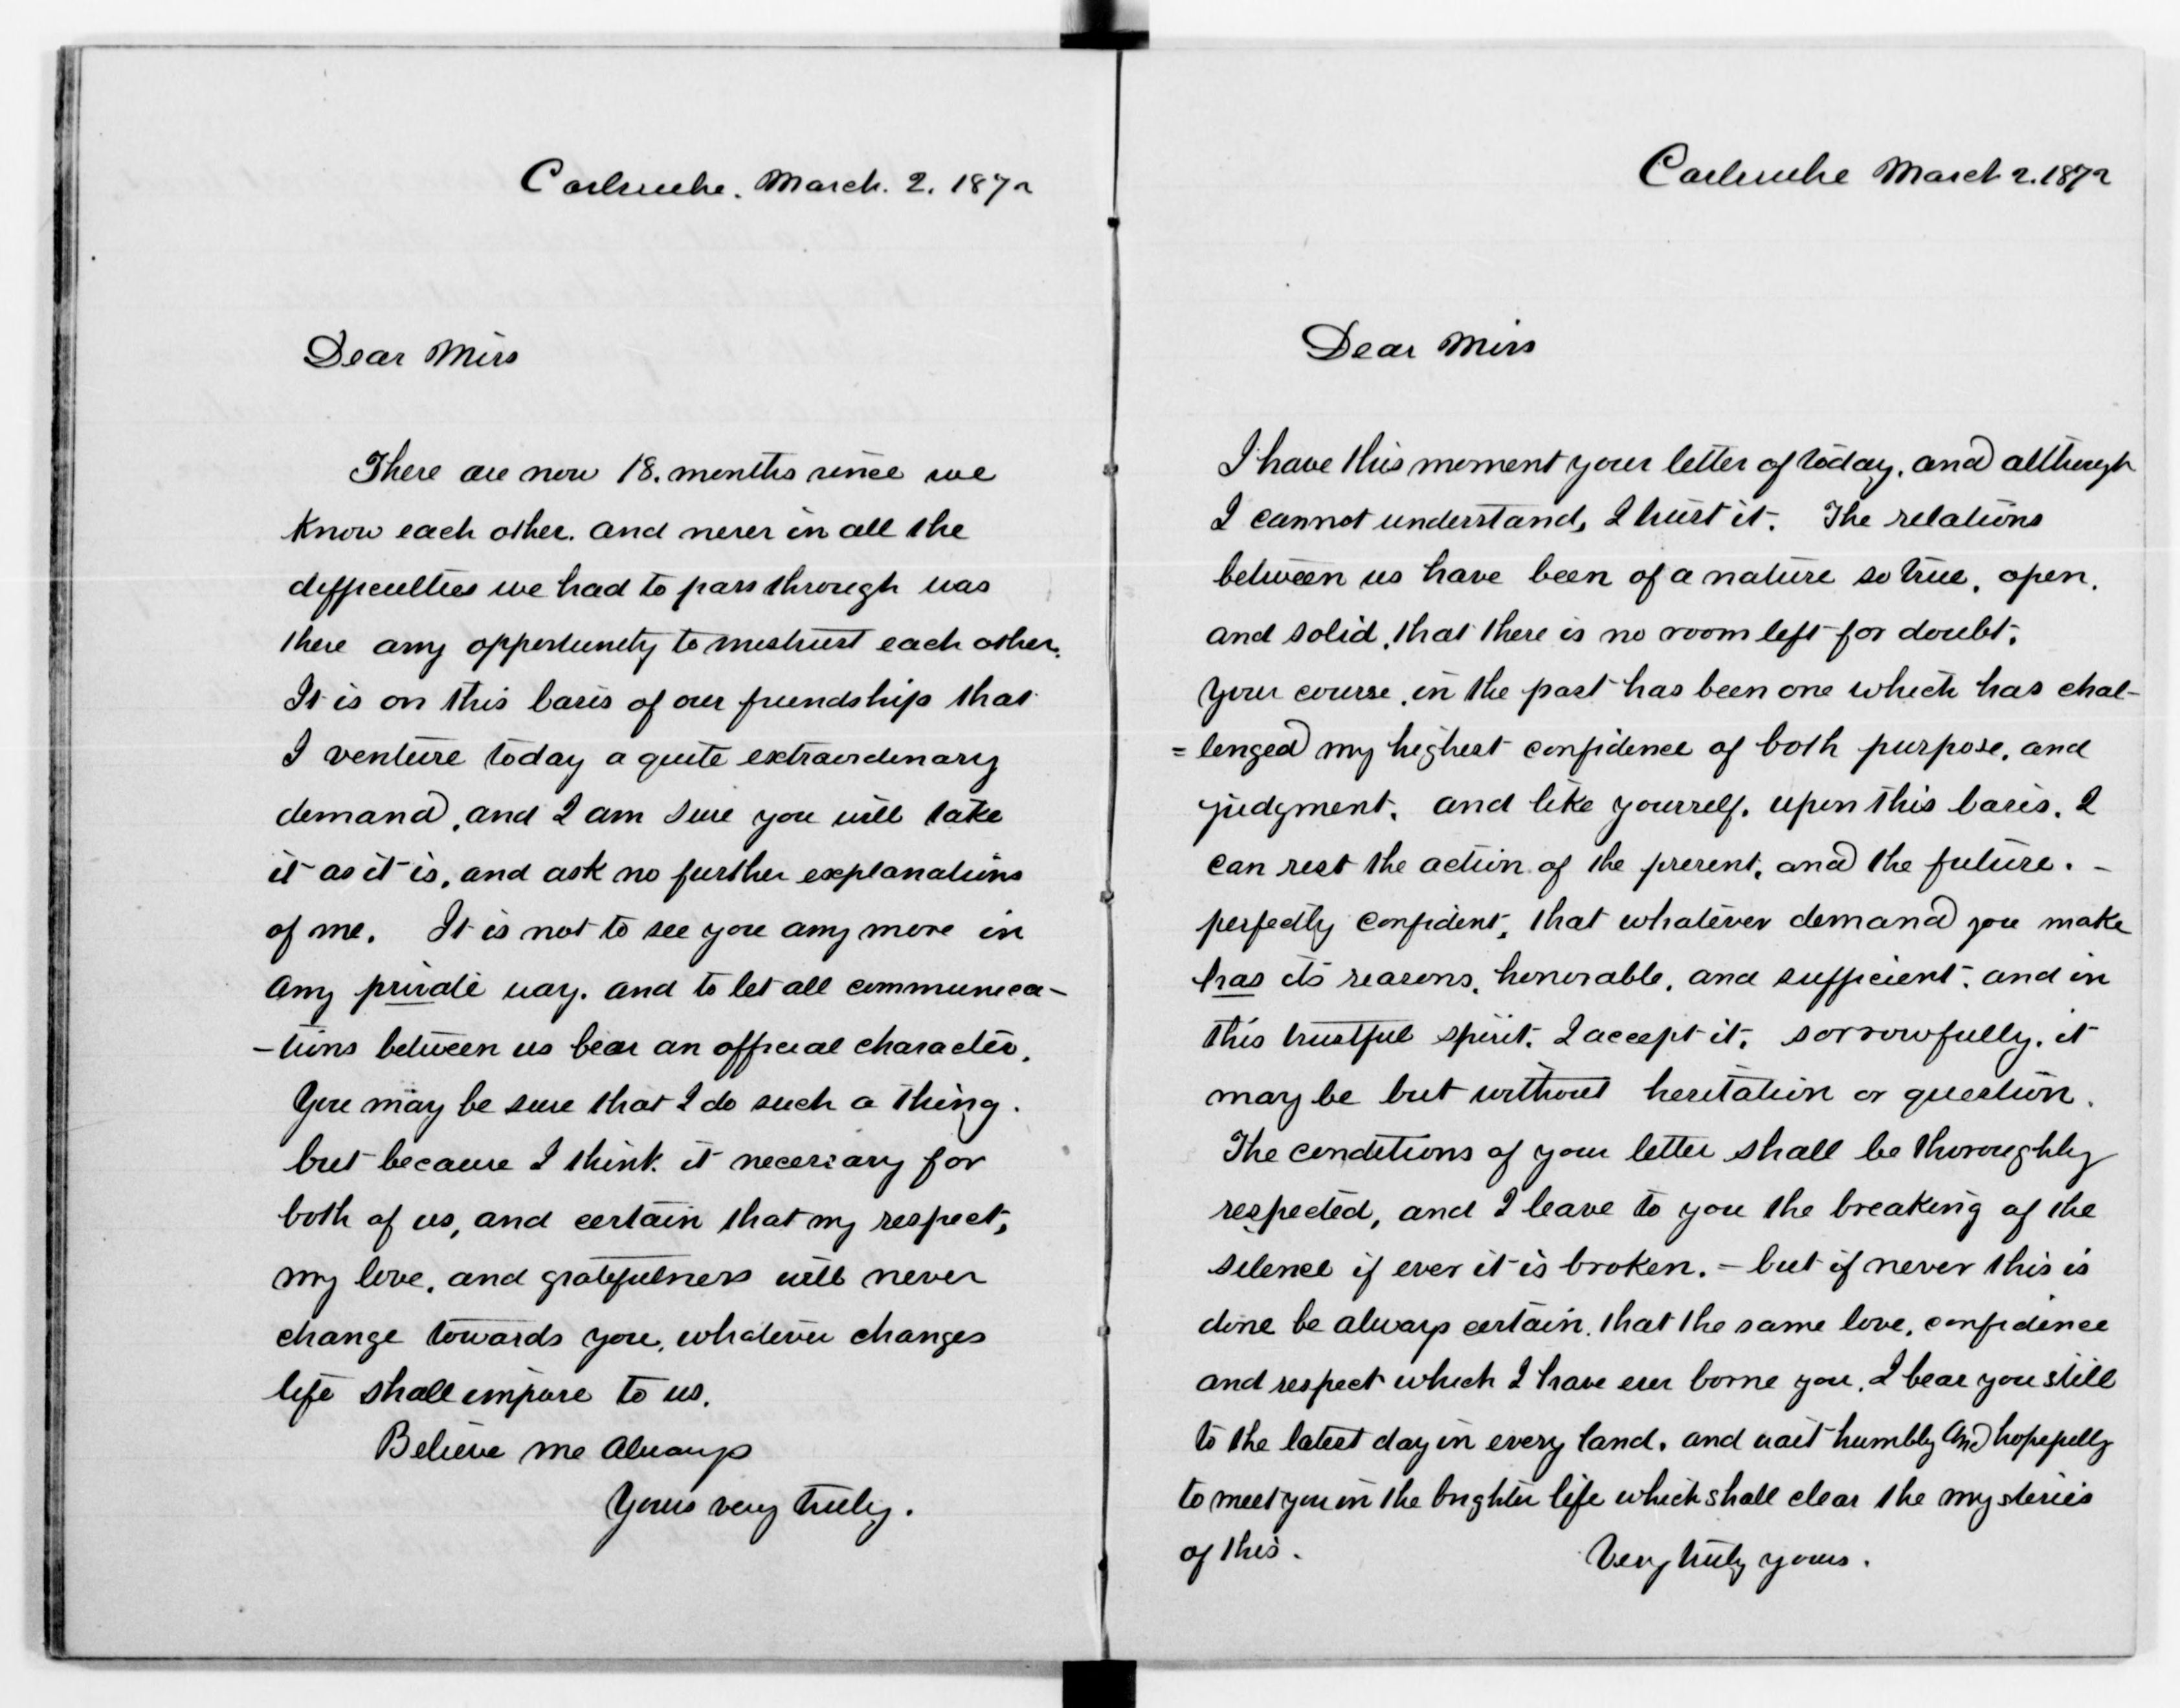 Carlsruhe. March. 2. 1872
Dear Miss
There are now 18. months since we
know each other. and never in all the
difficulties we had to pass through was
there any opportunity to mistrust each other.
It is on this basis of our friendship that
I venture today a quite extraordinary
demand, and I am sure you will take
it as it is, and ask no further explanations
of me. It is not to see you any more in
any private way. and to let all communica-
-tions between us bear an official character.
You may be sure that I do such a thing.
but because I think it necessary for
both of us, and certain that my respect,
my love, and gratefulness will never
change towards you, whatever changes
life shall impose to us.
Believe me always
Yours very truly.
Carlsruhe March 2. 1872
Dear Miss
I have this moment your letter of today, and although
I cannot understand, I trust it. The relations
between us have been of a nature so true, open,
and solid, that there is no room left for doubt.
Your course, in the past has been one which has chal-
=lenged my highest confidence of both purpose, and
judgment, and like yourself, upon this basis, I
can rest the action of the present, and the future. -
perfectly confident, that whatever demand you make
has its reasons, honorable, and sufficient, and in
this trustful spirit, I accept it, sorrowfully, it
may be but without hesitation or question.
The conditions of your letter shall be thoroughly
respected, and I leave to you the breaking of the
silence if ever it is broken. - but if never this is
done be always certain, that the same love, confidence
and respect which I have ever borne you, I bear you still
to the latest day in every land, and wait humbly and hopefully
to meet you in the brighter life which shall clear the mysteries
of this.
Very truly yours.